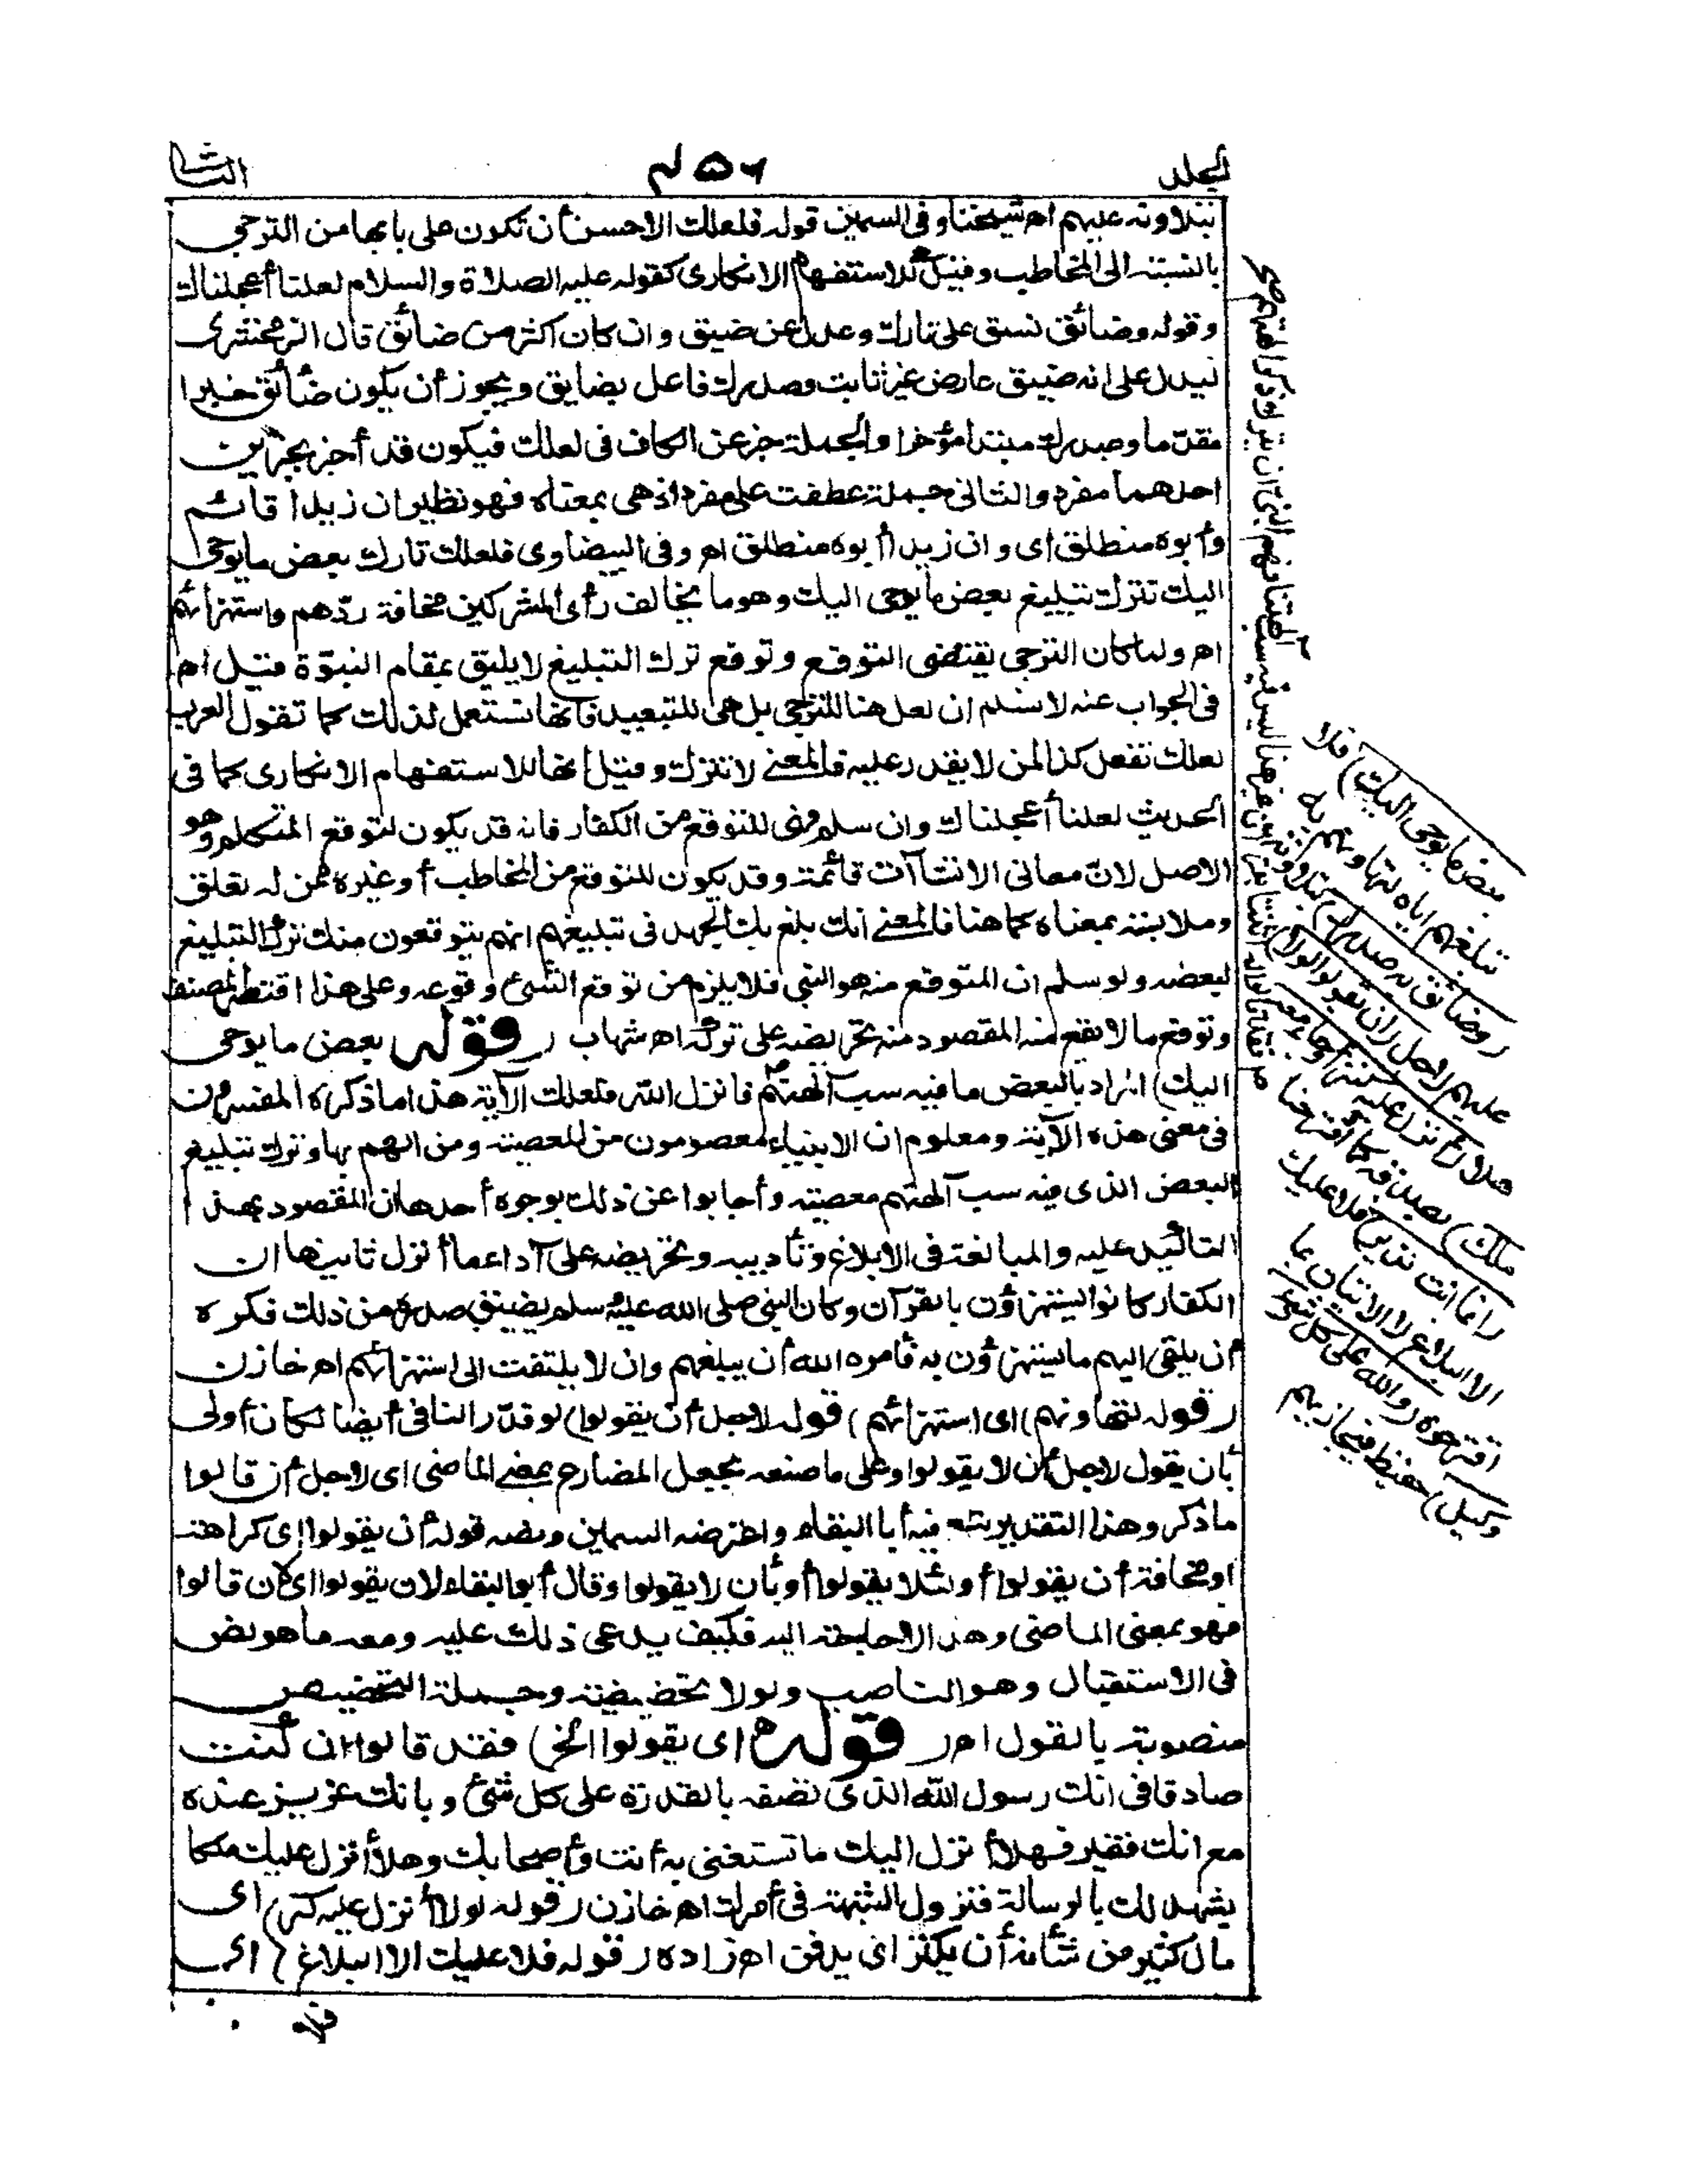 المجلد
٤٥٦
الثالث
بتلاوته عليهم اه شيخنا وفى السمين قوله فلعلك الاحسن أن تكون على بابها من الترجى
بالنسبة الى المخاطب وقيل هى للاستفهام الانكارى كقوله عليه الصلاة والسلام لعلنا أعجلناك
وقوله وضائق نسق على تارك وعدل عن ضيق وان كان اكثر من ضائق قال الزمخشرى
ليدل على انه ضيق عارض غير ثابت وصدرك فاعل بضايق ويجوز أن يكون ضائق خبرا
مقدّما وصدرك مبتدا مؤخرا والجملة خبر عن الكاف فى لعلك فيكون قد أخبر بخبرين
احدهما مفرد والثانى جملة عطفت على مفرد اذ هى بمعناه فهو نظير ان زيدا قائم
وأبوه منطلق اى وان زيدا أبوه منطلق اه وفى البيضاوى فلعلك تارك بعض ما يوحى
اليك تترك تبليغ بعض ما يوحى اليك وهو ما يخالف رأى المشركين مخافة ردّهم واستهزائهم
اه ولما كان الترجى يقتضى التوقع وتوقع ترك التبليغ لا يليق بمقام النبوّة قيل اه
فى الجواب عنه لا نسلم ان لعل هنا للترجى بل هى للتبعيد فانها تستعمل لذلك كما تقول العرب
لعلك تفعل كذا لمن لا يقدر عليه فالمعنى لا تترك وقيل انها للاستفهام الانكارى كما فى
الحديث لعلنا أعجلناك وان سلم فهى للتوقع من الكفار فانه قد يكون لتوقع المتكلم وهو
الاصل لانّ معانى الانشاآت قائمة وقد يكون للتوقع من المخاطب أو غيره ممن له تعلق
وملابسة بمعناه كما هنا فالمعنى انك بلغ بك الجهد فى تبليغهم انهم يتوقعون منك ترك التبليغ
لبعضه ولو سلم ان المتوقع منه هو النبى فلا يلزم من توقع الشىء وقوعه وعلى هذا اقتصر المصنف
وتوقع ما لا يقع منه المقصود منه تحريضه على تركه اه شهاب (قوله بعض ما يوحى
اليك) المراد بالبعض ما فيه سب آلهتهم فانزل الله فلعلك الآية هذا ما ذكره المفسرون
فى معنى هذه الآية ومعلوم ان الانبياء معصومون من المعصية ومن الهم بها وترك تبليغ
البعض الذى فيه سب آلهتهم معصية وأجابوا عن ذلك بوجوه أحدها ان المقصود بهذا
التأكيد عليه والمبالغة فى الابلاغ وتأديبه وتحريضه على آداء ما أنزل ثانيها ان
الكفار كانوا يستهزؤن بالقرآن وكان النبى صلى الله عليه وسلم يضيق صدره من ذلك فكره
أن يلقى اليهم ما يستهزؤن به فأمره الله أن يبلغهم وان لا يلتفت الى استهزائهم اه خازن
(قوله لتهاونهم) اى استهزائهم) قوله لاجل أن يقولوا) لو قدّر النافى أيضا لكان أولى
بأن يقول لاجل أن لا يقولوا وعلى ما صنعه يجعل المضارع بمعنى الماضى اى لاجل أن قالوا
ما ذكر وهذا التقدير تبع فيه أبا البقاء واعترضه السمين ونصه قوله أن يقولوا اى كراهة
او مخافة أن يقولوا أو لئلا يقولوا أو بأن لا يقولوا وقال أبو البقاء لان يقولوا اى لان قالوا
فهو بمعنى الماضى وهذا لا حاجة اليه فكيف يدعى ذلك عليه ومعه ما هو نص
فى الاستقبال وهو الناصب ولولا تحضيضية وجملة التحضيض
منصوبة بالقول اه (قوله اى يقولوا الخ) فقد قالوا ان كنت
صادقا فى انك رسول الله الذى تصفه بالقدرة على كل شىء وبانك عزيز عنده
مع انك فقير فهلا أنزل اليك ما تستغنى به أنت وأصحابك وهلا أنزل عليك ملكا
يشهد لك بالرسالة فتزول الشبهة فى أمرك اه خازن (قوله لولا أنزل عليه كنز) اى
مال كثير من شأنه أن يكنز اى يدفن اه زاده (قوله فلا عليك الا البلاغ) اى
بعض ما يوحى اليك) فلا
تبلغهم اياه لتهاونهم به
(وضائق به صدرك) بتلاوته
عليهم لاجل (ان يقولوا لولا)
هلا (أنزل عليه كنز أو جاء معه
ملك) يصدقه كما اقترحنا
(انما انت نذير) فلا عليك
الا البلاغ لا الاتيان بما
اقترحوه (والله على كل شىء
وكيل) حفيظ فيجازيهم